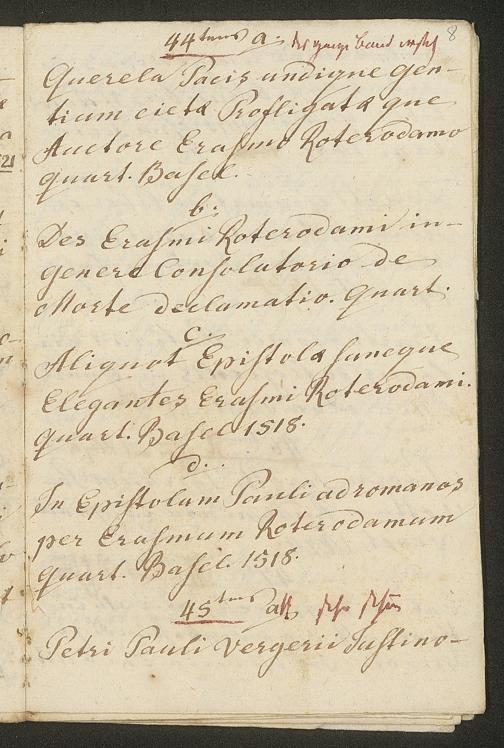 8
44tus a. der ganze band
Querela Pacis undique gen-
tium eietæ Profligatæ que
Auctore Erasmo Roterodamo
quart. Basel.
b.
Des Erasmi Roterodami in
genere Consolatorio de
Morte declamatio. Quart.
c.
Aliquot Epistolæ saneque
Elegantes Erasmi Roterodami.
quart. Basel 1518.
d.
In Epistolam Pauli ad romanos
per Erasmum Roterodamum
quart. Basel. 1518.
45tus a sehr schön
Petri Pauli Vergerii Justino-
521